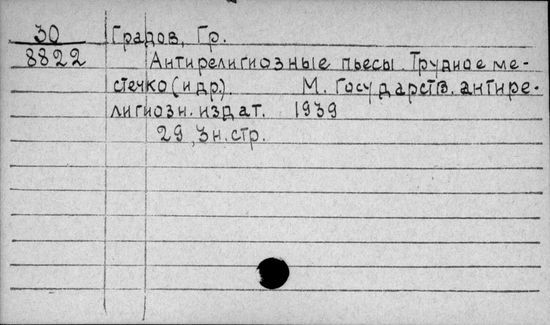 30 Градов, Гр.
8822 Антирелигиозные пьесы. Трудное ме-
стечко (и др.). М. Государств. антире-
лигиозн. издат. 1939
29, 3 н. стр.